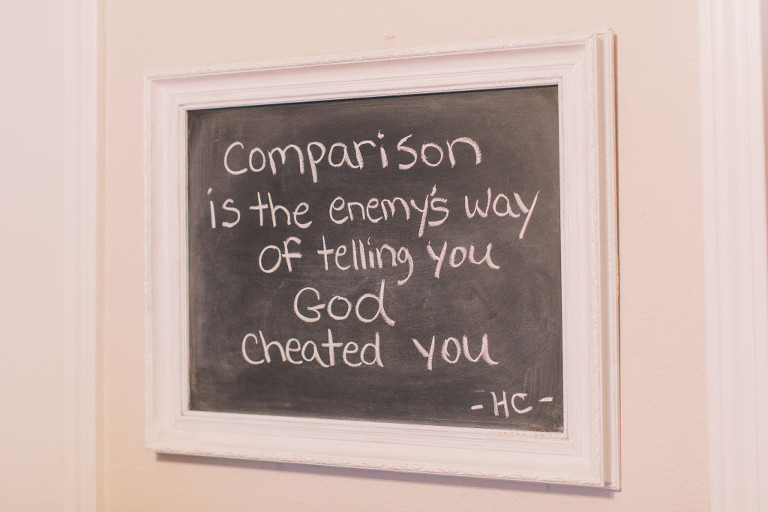 Comparison
is the enemy's way
of telling you
God
cheated you
-HC-